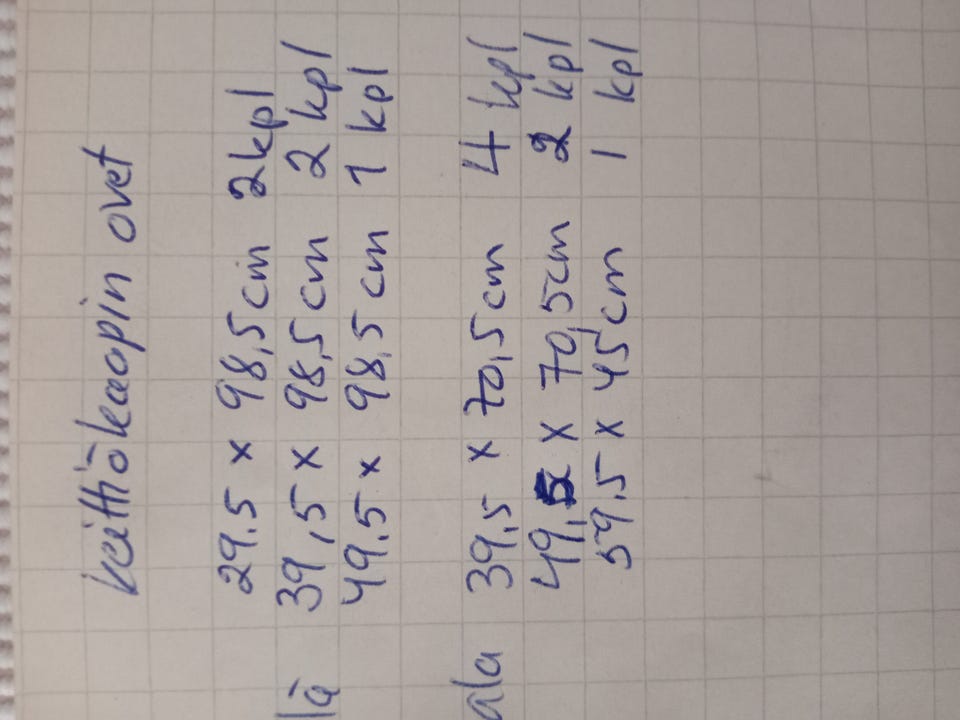 keittiökaapin ovet
29.5 x 98,5 cm 2 kpl
39,5 x 98,5 cm 2 kpl
lä 49.5 x 98,5 cm 1 kpl
ala 39,5 x 70,5 cm 4 kpl
49,5 x 70,5 cm 2 kpl
59.5 x 45 cm 1 kpl